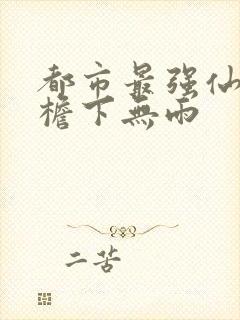 都市最强仙
檐下無雨
二苦